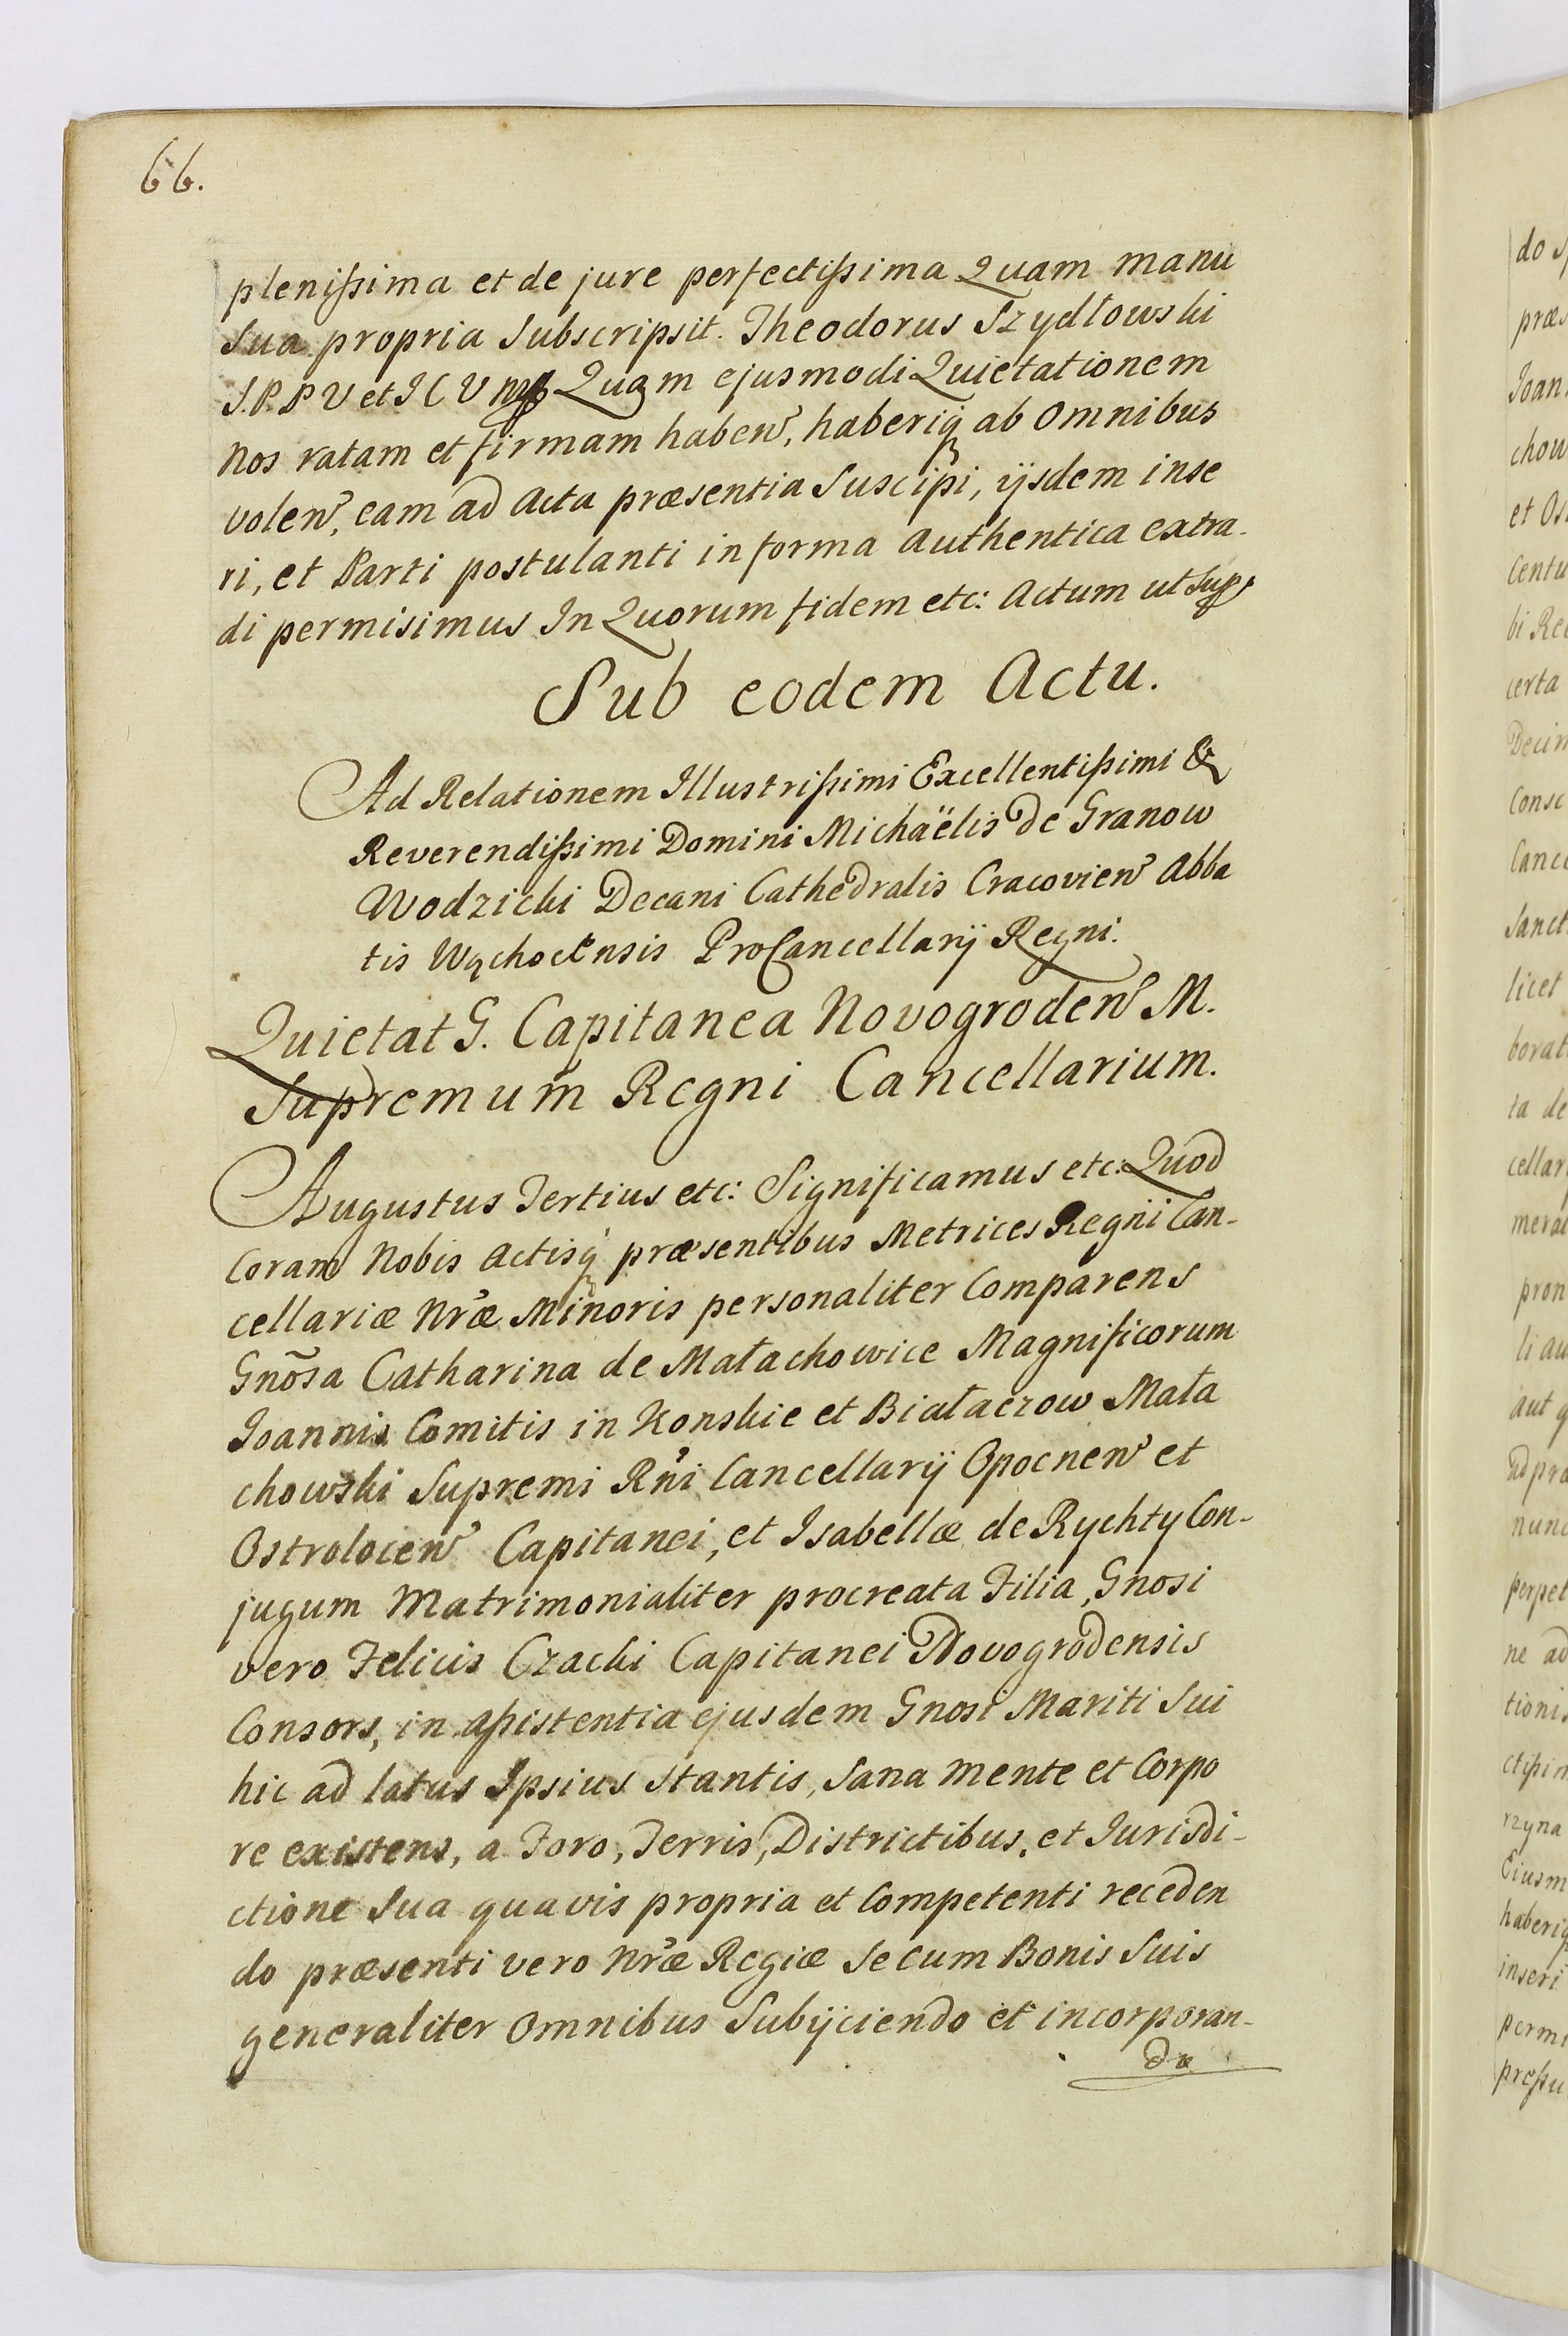 66.
plenissima et de jure perfectissima Quam manu
sua propria Subscripsit. Theodorus Szydłowski
S.P.P V et J C V mpp Quam ejusmodi Quietationem
Nos ratam et firmam haben̄, haberiq; ab omnibus
volen̄, eam ad Acta præsentia Suscipi, ijsdem inse
ri, et Parti postulanti in forma authentica extra-
di permisimus In Quorum fidem etc: Actum ut Sup
Sub eodem Actu.
Ad Relationem Illustrissimi Excellentissimi &
Reverendissimi Domini Michaëlis de Granow
Wodzicki Decani Cathedralis Cracovien̄ Abba
tis Wąchocensis ProCancellarij Regni.
Quietat G. Capitanea Novogroden̄ M.
Supremum Regni Cancellarium.
Augustus Tertius etc: Significamus etc: Quod
Coram Nobis Actisq; præsentibus Metrices Regni Can-
cellariæ Nræ Minoris personaliter Comparens
Gnõsa Catharina de Małachowice Magnificorum
Joannis Comitis in Konskie et Białaczow Mała
chowski Supremi Rñi Cancellarij Opocnen̄ et
Ostrolocen̄ Capitanei, et Isabellæ de Rychty Con-
jugum Matrimonialiter procreata Filia, Gnosi
vero Felicis Czacki Capitanei Novogrodensis
Consors, in assistentia ejusdem Gnosi Mariti Sui
hic ad latus Ipsius stantis, Sana mente et Corpo
re existens, a Foro, Terris, Districtibus, et Jurisdi-
ctione Sua quavis propria et Competenti receden
do præsenti vero Nræ Regiæ se cum Bonis Suis
generaliter omnibus Subijciendo et incorporan-
do